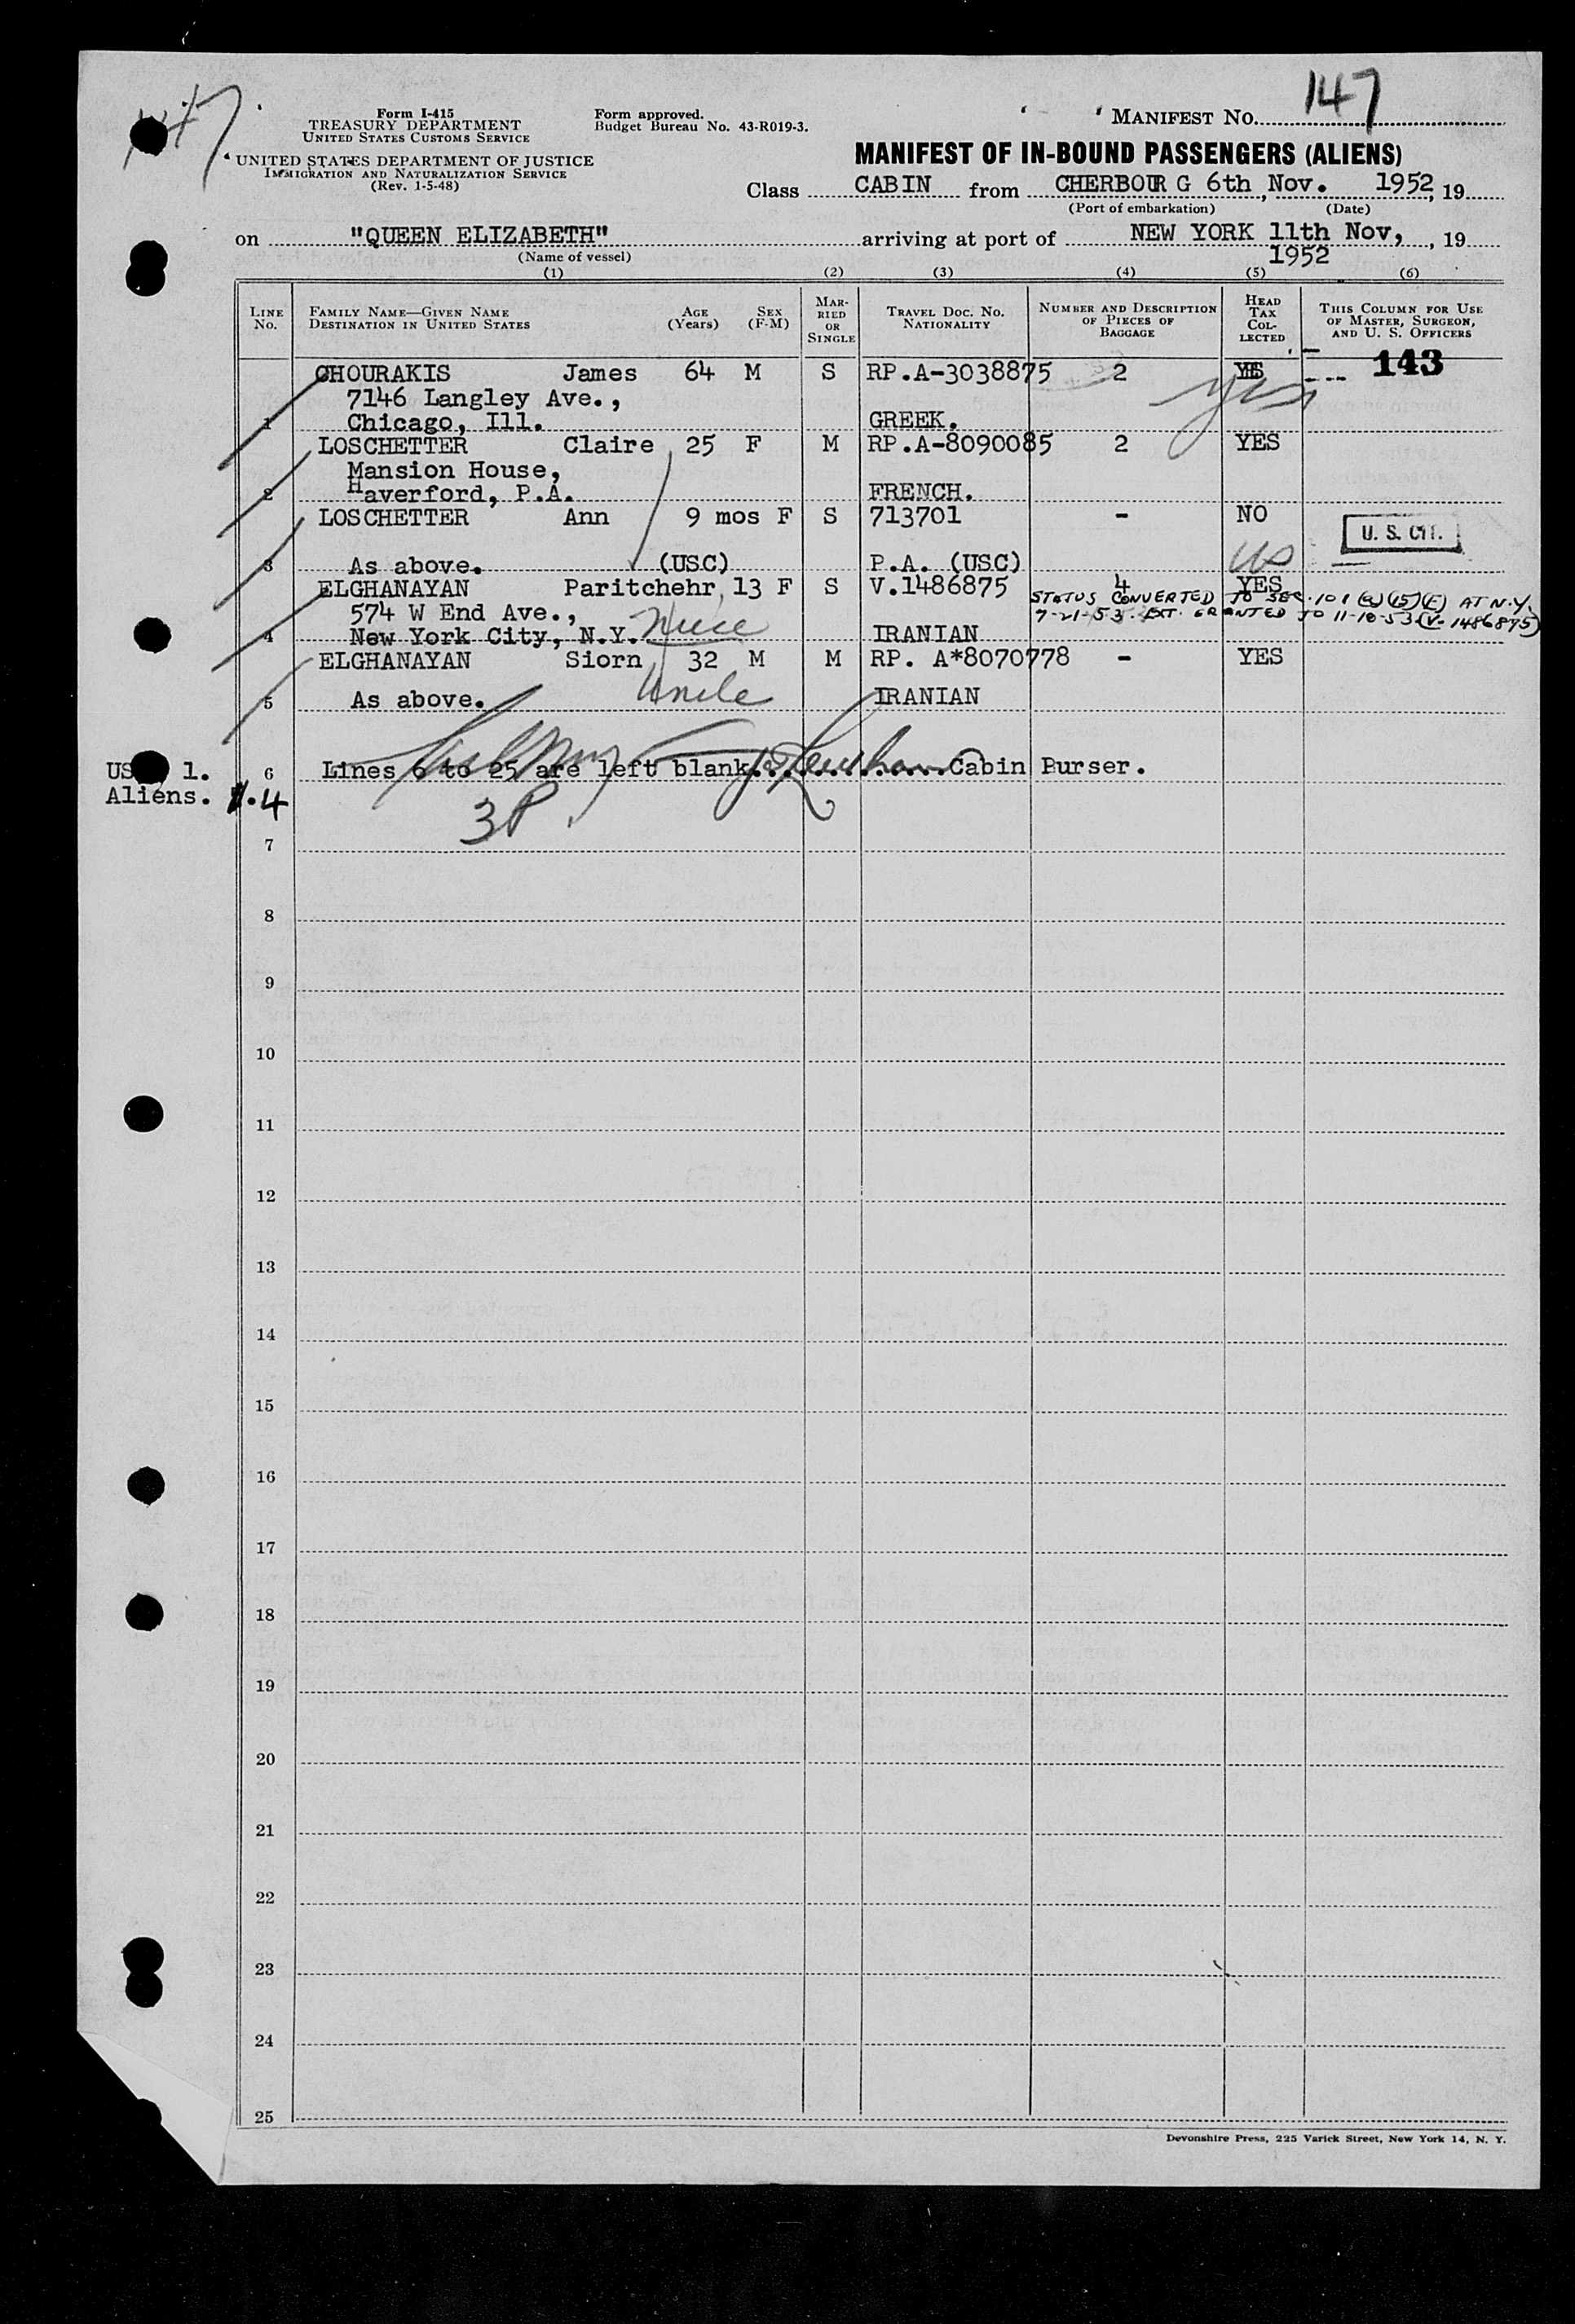 147
Form I-415
TREASURY DEPARTMENT
UNITED STATES CUSTOMS SERVICE
UNITED STATES DEPARTMENT OF JUSTICE
IMMIGRATION AND NATURALIZATION SERVICE
(Rev. 1-5-48)
Form approved.
Budget Bureau No. 43-R019-3.
MANIFEST NO. 147
MANIFEST OF IN-BOUND PASSENGERS (ALIENS)
Class CABIN from CHERBOURG 6th, Nov. 1952, 19
(Port of embarkation) (Date)
on "QUEEN ELIZABETH" arriving at port of NEW YORK 11th Nov, , 19
(Name of vessel) 1952
(1) (2) (3) (4) (5) (6)
LINE No. FAMILY NAME—GIVEN NAME DESTINATION IN UNITED STATES AGE (Years) SEX (F-M) MARRIED OR SINGLE TRAVEL DOC. NO. NATIONALITY NUMBER AND DESCRIPTION OF PIECES OF BAGGAGE HEAD TAX COLLECTED THIS COLUMN FOR USE OF MASTER, SURGEON, AND U. S. OFFICERS
143
CHOURAKIS James 64 M S RP.A-3038875 2 YES
7146 Langley Ave., yes
1 Chicago, Ill. GREEK.
LOSCHETTER Claire 25 F M RP.A-8090085 2 YES
Mansion House,
2 Haverford, P.A. FRENCH.
LOSCHETTER Ann 9 mos F S 713701 - NO
U. S. CIT.
3 As above. (USC) P.A. (USC)
ELGHANAYAN Paritchehr, 13 F S V.1486875 4 YES
STATUS CONVERTED TO SEC. 101 (a)(15)(F) AT N.Y.
574 W End Ave.,
7-21-53. EXT. GRANTED TO 11-10-53 (V-1486875)
4 New York City, N.Y. Niece IRANIAN
ELGHANAYAN Siorn 32 M M RP. A*8070778 - YES
5 As above. Uncle IRANIAN
USC. 1.
6 Lines 6 to 25 are left blank. Cabin Purser.
Aliens. .4
3P.
7
8
9
10
11
12
13
14
15
16
17
18
19
20
21
22
23
24
25
Devonshire Press, 225 Varick Street, New York 14, N. Y.